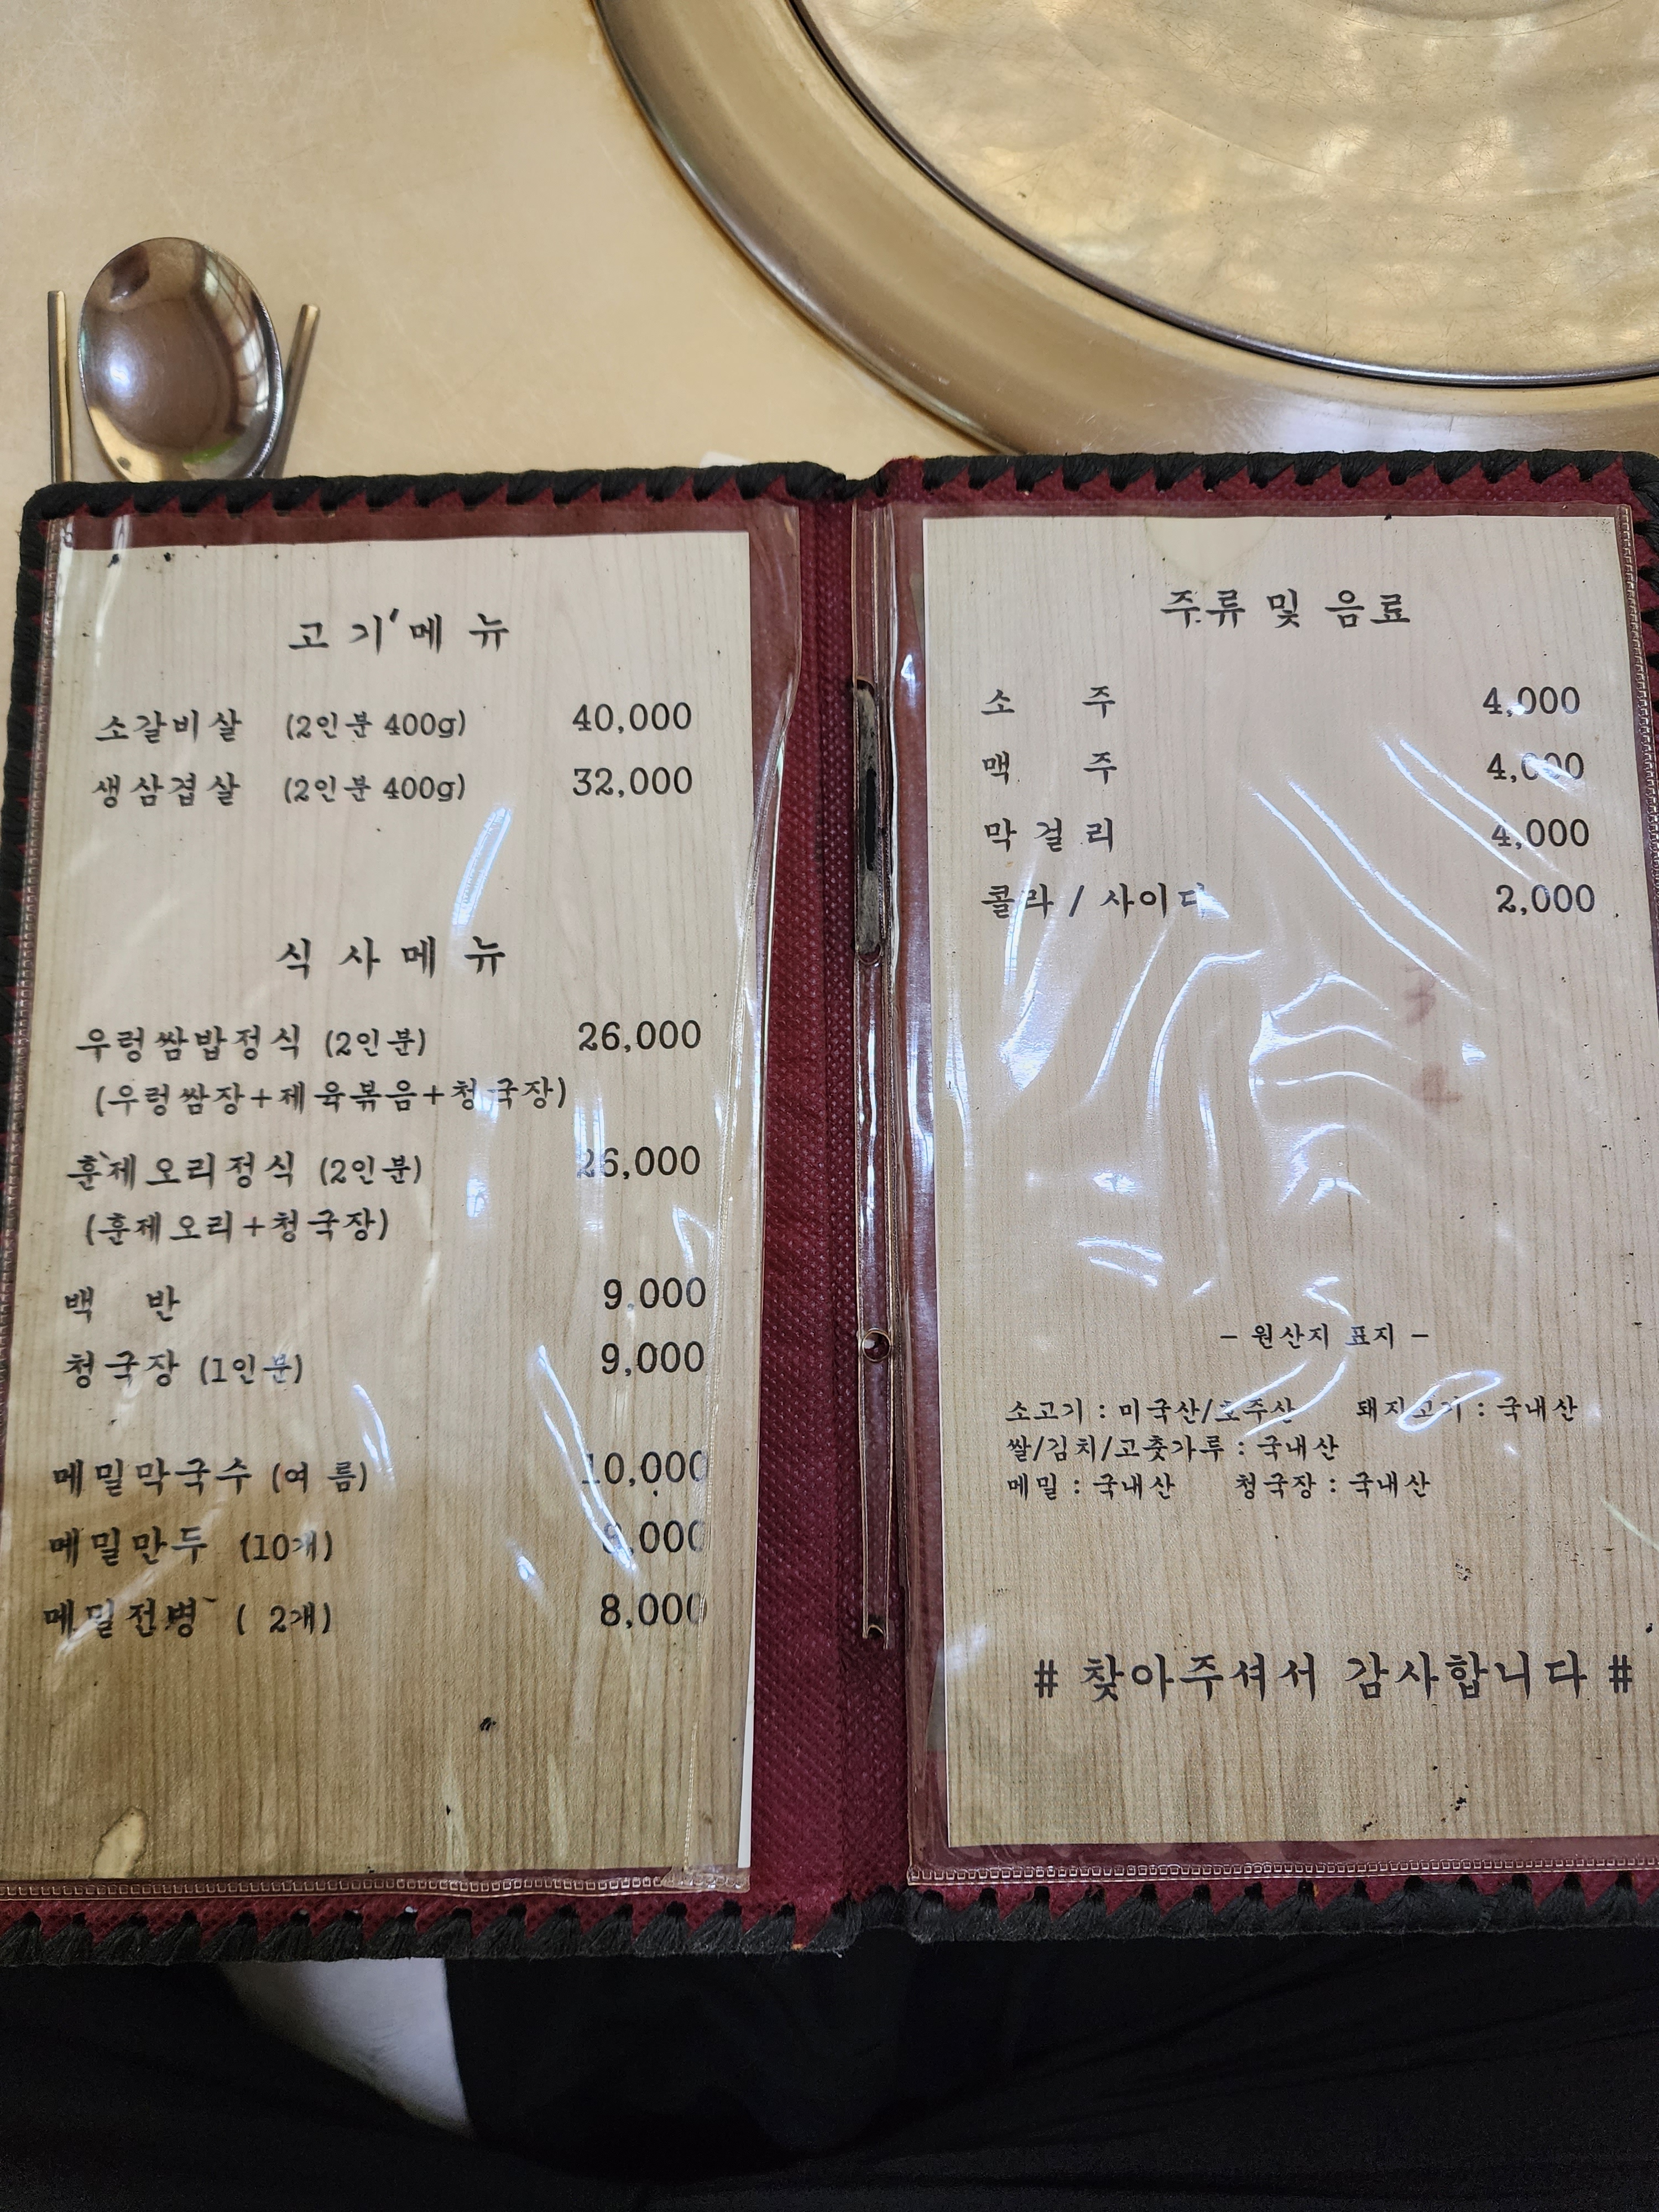 고기메뉴
소갈비살 (2인분 400g) 40,000
생삼겹살 (2인분 400g) 32,000
식사메뉴
우렁쌈밥정식 (2인분) 26,000
(우렁쌈장+제육볶음+청국장)
훈제오리정식 (2인분) 26,000
(훈제오리+청국장)
백 반 9,000
청국장 (1인분) 9,000
메밀막국수 (여름) 10,000
메밀만두 (10개)
메밀전병 ( 2개) 8,000
주류 및 음료
소 주 4,000
맥 주 4,000
막걸리 4,000
콜라 / 사이다 2,000
- 원산지 표지 -
소고기 : 미국산/호주산 돼지고기 : 국내산
쌀/김치/고춧가루 : 국내산
메밀 : 국내산 청국장 : 국내산
# 찾아주셔서 감사합니다 #